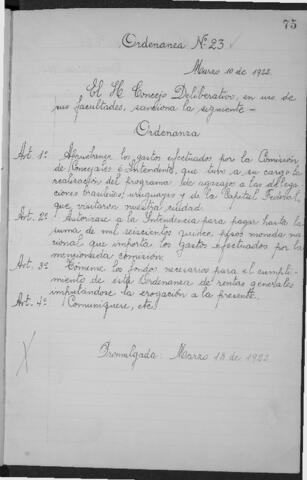 75
Ordenanza Nº 23
Marzo 10 de 1922.
El H. Concejo Deliberativo, en uso de
sus facultades, sanciona la siguiente -
Ordenanza
Art. 1º Apruébanse los gastos efectuados por la Comisión
de Concejales é Intendente, que tubo a su cargo la
realización del programa de agasajos a las delega
ciones brasileña, uruguayas y de la Capital Federal,
que visitaron nuestra ciudad.
Art. 2º Autorizase a la Intendencia para pagar hasta la
suma de mil seiscientos quince pesos moneda na
cional que importa los gastos efectuados por la
mencionada comisión.
Art. 3º Tómense los fondos necesarios para el cumpli-
miento de esta Ordenanza de rentas generales
imputándose la erogación a la presente.
Art. 4º Comuníquese, etc.
Promulgada: Marzo 13 de 1922